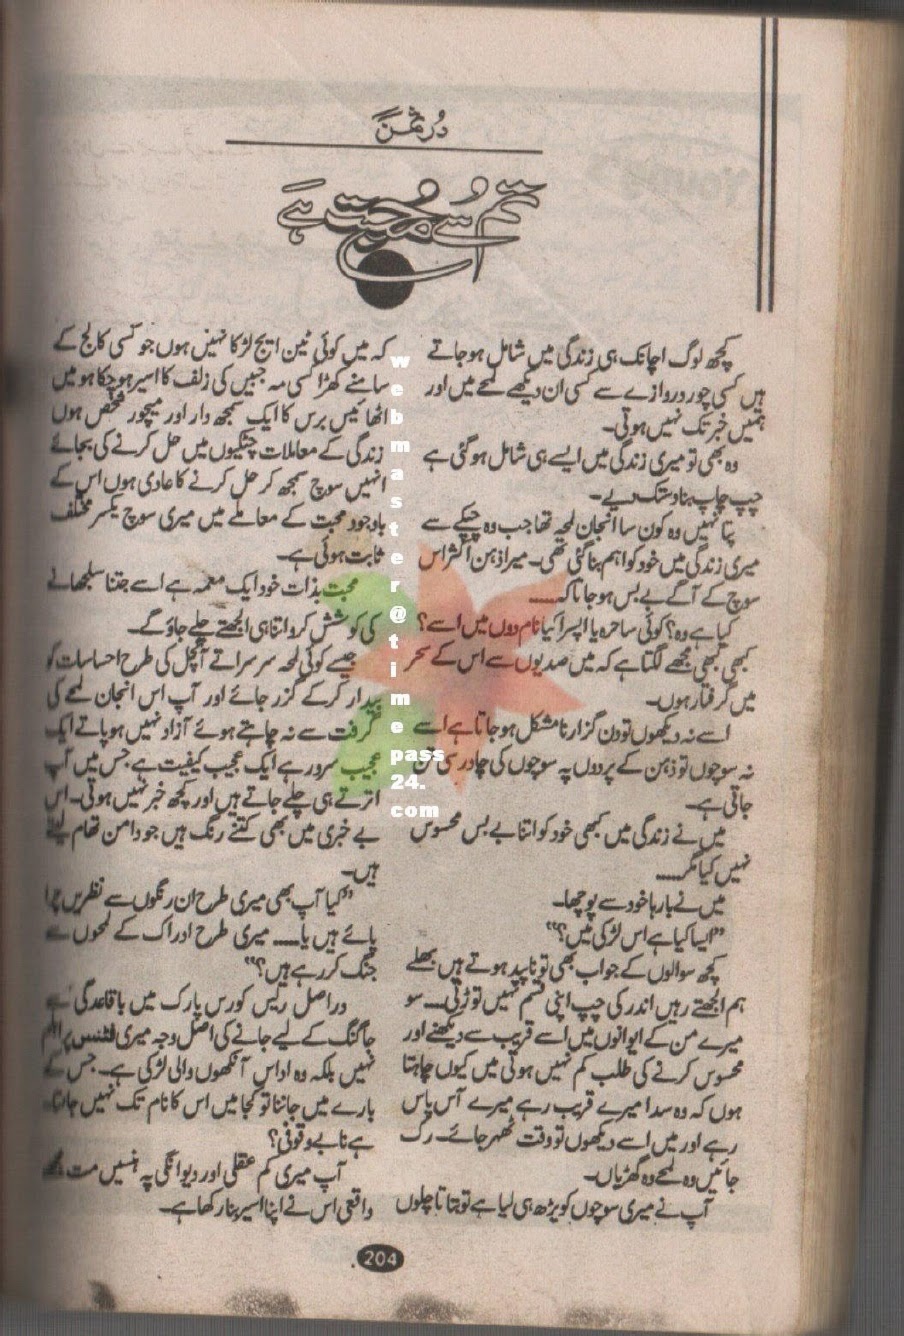 دُرِثمن
تم سے محبت ہے
کچھ لوگ اچانک ہی زندگی میں شامل ہو جاتے
ہیں کسی چور دروازے سے کسی ان دیکھے لمحے میں اور
ہمیں خبر تک نہیں ہوتی۔
وہ بھی تو میری زندگی میں ایسے ہی شامل ہو گئی ہے
چپ چاپ بنا دستک دیے۔
پتا نہیں وہ کون سا انجان لمحہ تھا جب وہ چپکے سے
میری زندگی میں خود کو اہم بنا گئی تھی۔ میرا ذہن اکثر اس
سوچ کے آگے بے بس ہو جاتا کہ......
کیا ہے وہ؟ کوئی ساحرہ یا اپسرا کیا نام دوں میں اسے؟
کبھی کبھی مجھے لگتا ہے کہ میں صدیوں سے اس کے سحر
میں گرفتار ہوں۔
اسے نہ دیکھوں تو دن گزارنا مشکل ہو جاتا ہے اسے
نہ سوچوں تو ذہن کے پردوں پہ سوچوں کی چادر سی تن
جاتی ہے۔
میں نے زندگی میں کبھی خود کو اتنا بے بس محسوس
نہیں کیا مگر......
میں نے بارہا خود سے پوچھا۔
”ایسا کیا ہے اس لڑکی میں؟“
کچھ سوالوں کے جواب بھی تو ناپید ہوتے ہیں بھلے
ہم الجھتے رہیں اندر کی چپ اپنی قسم نہیں توڑتی... سو
میرے من کے ایوانوں میں اسے قریب سے دیکھنے اور
محسوس کرنے کی طلب کم نہیں ہوتی میں کیوں چاہتا
ہوں کہ وہ سدا میرے قریب رہے میرے آس پاس
رہے اور میں اسے دیکھوں تو وقت ٹھہر جائے۔ رک
جائیں وہ لمحے وہ گھڑیاں۔
آپ نے میری سوچوں کو پڑھ ہی لیا ہے تو بتاتا چلوں
کہ میں کوئی ٹین ایج لڑکا نہیں ہوں جو کسی کالج کے
سامنے کھڑا کسی مہ جبیں کی زلف کا اسیر ہو چکا ہو میں
اٹھائیس برس کا ایک سمجھ دار اور میچور شخص ہوں
زندگی کے معاملات چٹکیوں میں حل کرنے کی بجائے
انہیں سوچ سمجھ کر حل کرنے کا عادی ہوں اس کے
باوجود محبت کے معاملے میں میری سوچ یکسر مختلف
ثابت ہوئی ہے۔
محبت بذات خود ایک معمہ ہے اسے جتنا سلجھانے
کی کوشش کرو اتنا ہی الجھتے چلے جاؤ گے۔
جیسے کوئی لمحہ سرسراتے آنچل کی طرح احساسات کو
بیدار کر کے گزر جائے اور آپ اس انجان لمحے کی
گرفت سے نہ چاہتے ہوئے آزاد نہیں ہو پاتے ایک
عجیب سرور ہے ایک عجیب کیفیت ہے جس میں آپ
اترتے ہی چلے جاتے ہیں اور کچھ خبر نہیں ہوتی۔ اس
بے خبری میں بھی کتنے رنگ ہیں جو دامن تھام لیتے
ہیں۔
”کیا آپ بھی میری طرح ان رنگوں سے نظریں چرا
پائے ہیں یا..... میری طرح ادراک کے لمحوں سے
جنگ کر رہے ہیں؟“
دراصل ریس کورس پارک میں باقاعدگی سے
جاگنگ کے لیے جانے کی اصل وجہ میری فٹنس پرابلم
نہیں بلکہ وہ اداس آنکھوں والی لڑکی ہے۔ جس کے
بارے میں جاننا تو کجا میں اس کا نام تک نہیں جانتا۔
ہے نا بے وقوفی؟
آپ میری کم عقلی اور دیوانگی پہ ہنسیں مت مجھے
واقعی اس نے اپنا اسیر بنا رکھا ہے۔
204
webmaster@timepass24.com